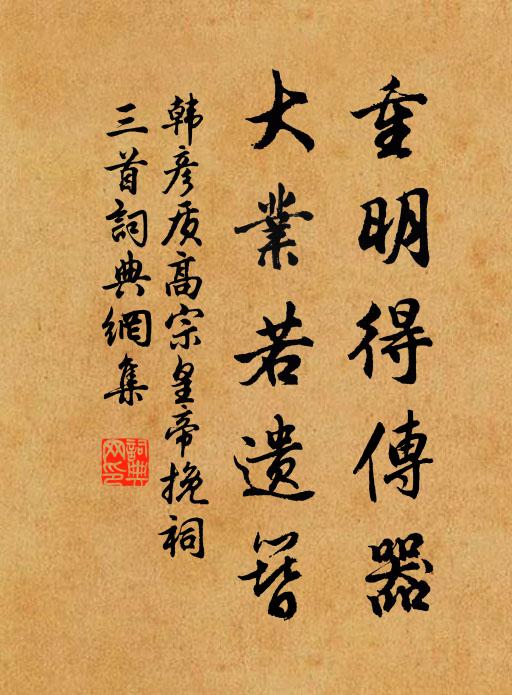 重明得傳器
大業若遺簪
韩彦质高宗皇帝挽祠
三首詞典網集
詞典网印